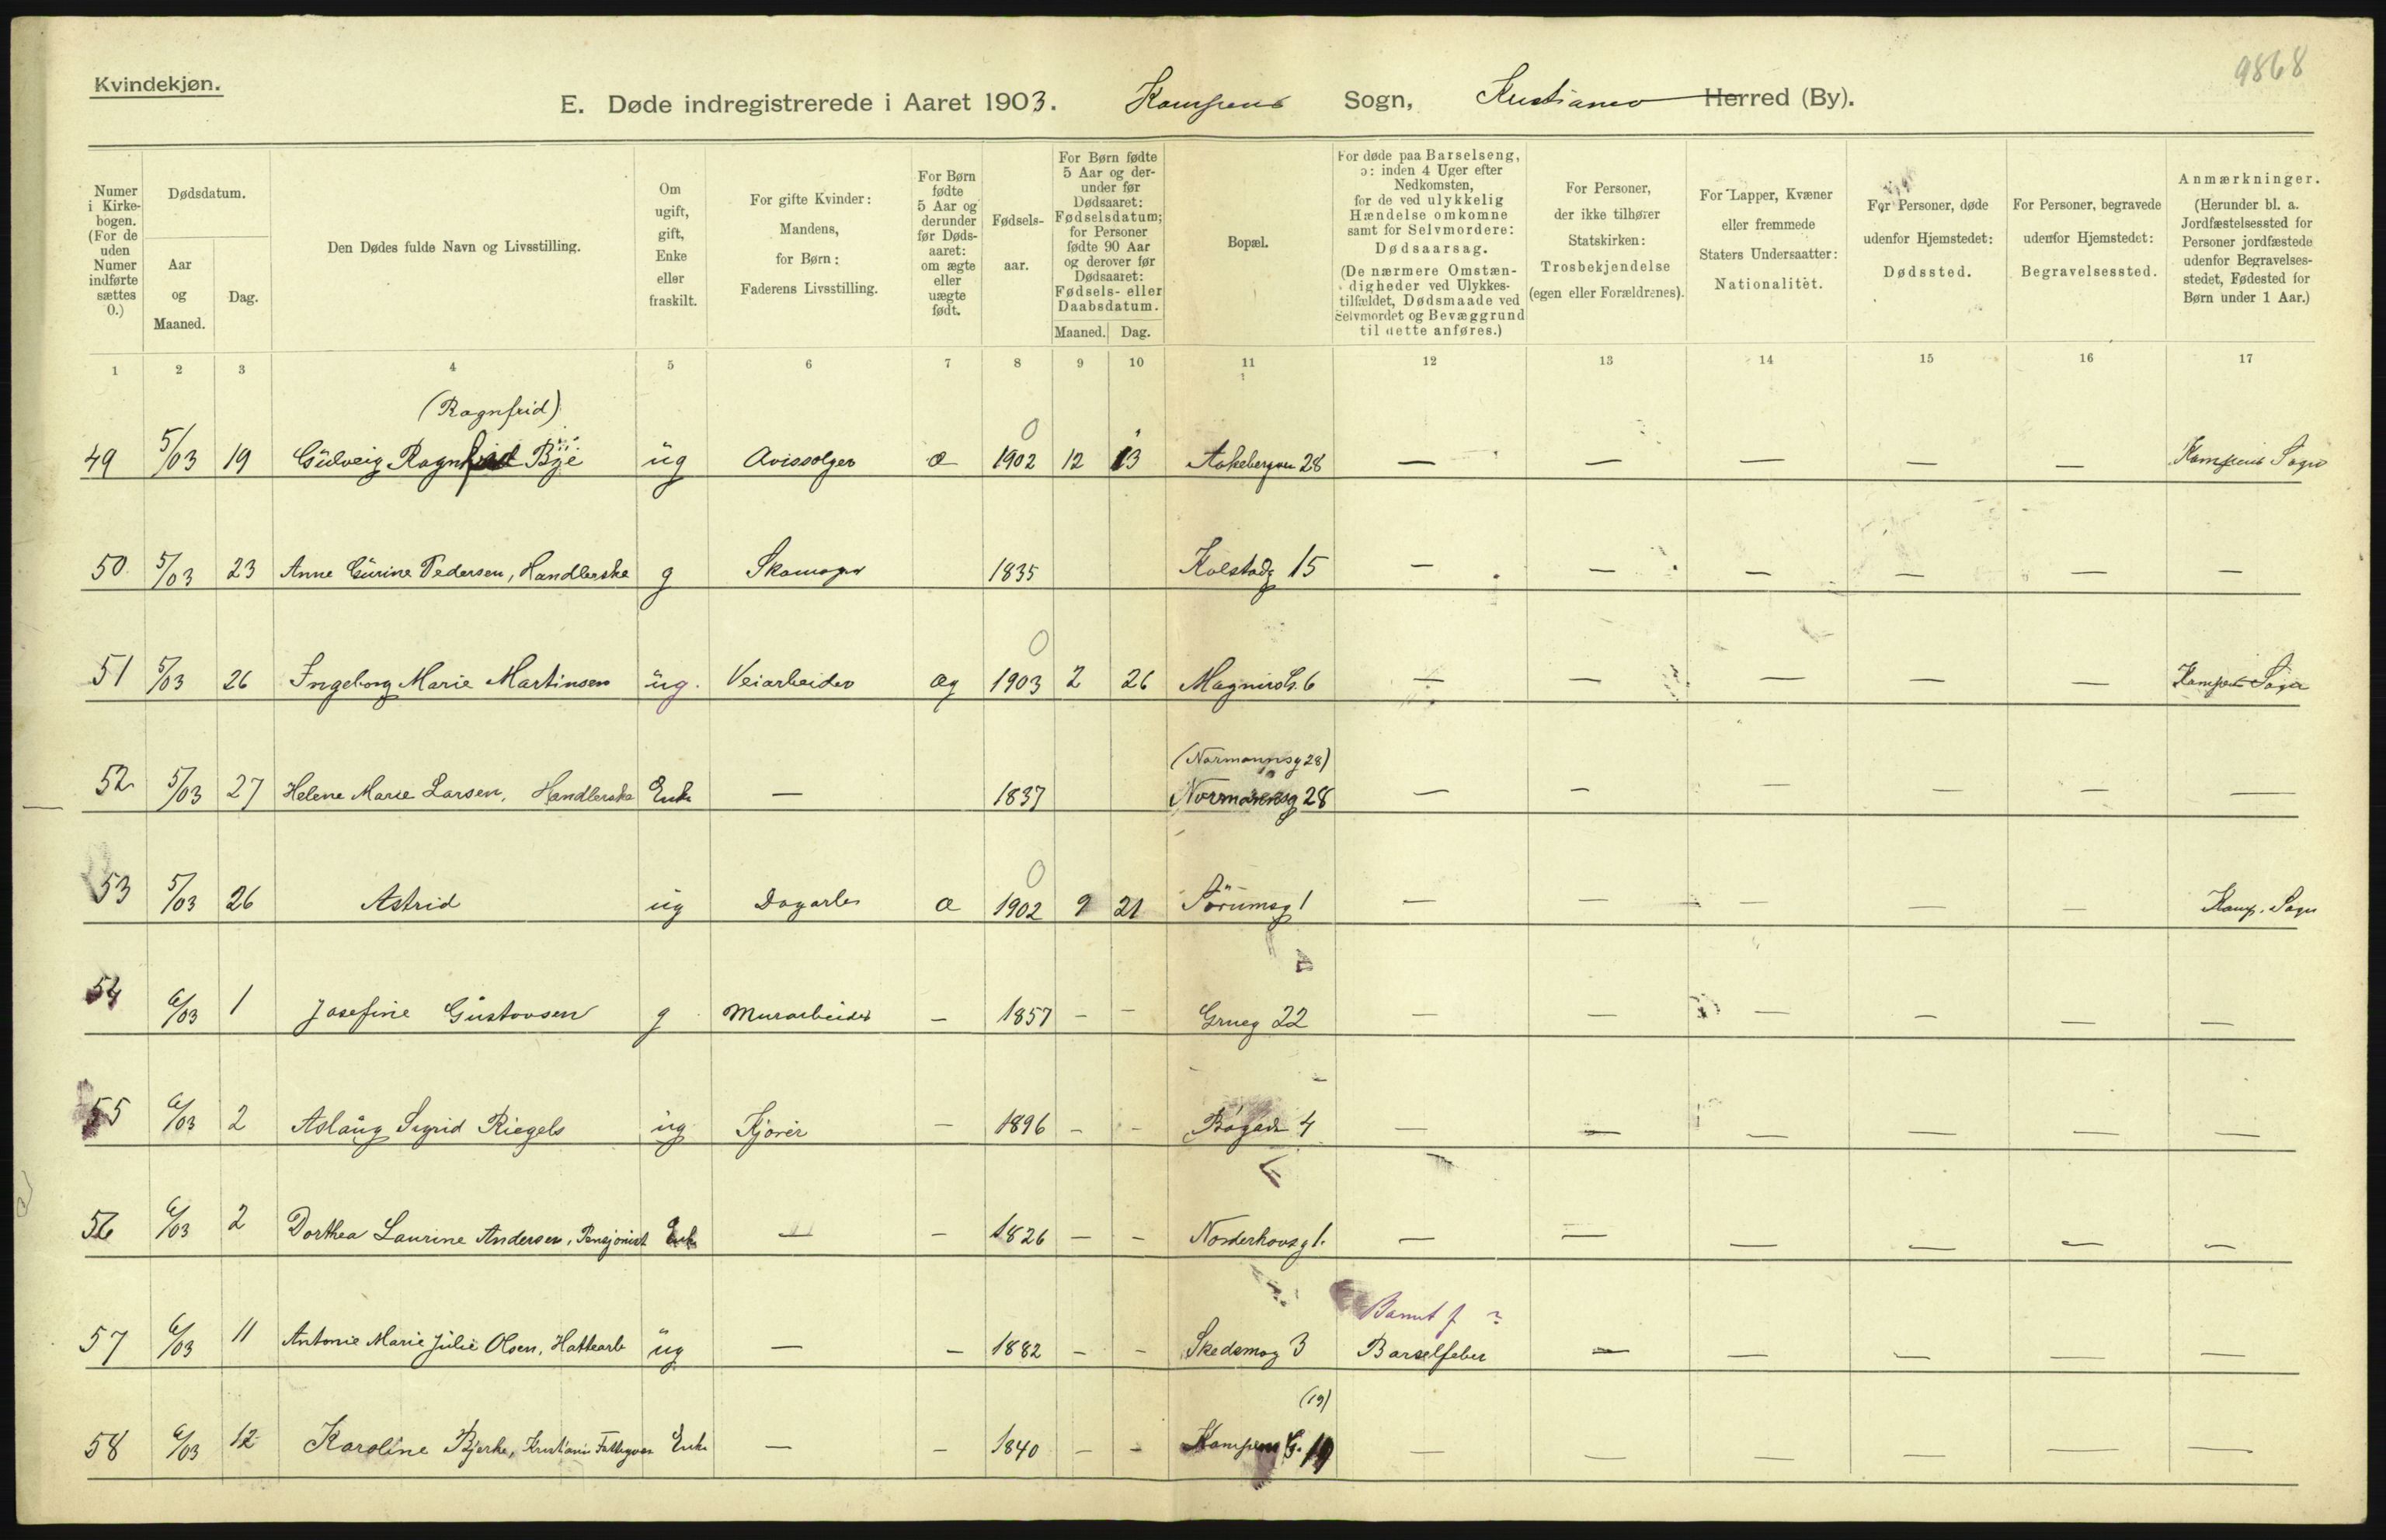 9868
Kvindekjøn.
E. Døde indregistrerede i Aaret 1903. Kampens Sogn, Kristiania Herred (By).
Numer i Kirkebogen. (For de uden Numer indførte sættes 0.)
Dødsdatum.
Aar og Maaned.
Dag.
Den Dødes fulde Navn og Livsstilling.
Om ugift, gift, Enke eller fraskilt.
For gifte Kvinder: Mandens, for Børn: Faderens Livsstilling.
For Børn fødte 5 Aar og derunder før Dødsaaret: om ægte eller uægte født.
Fødselsaar.
For Børn fødte 5 Aar og derunder før Dødsaaret: Fødselsdatum; for Personer fødte 90 Aar og derover før Dødsaaret: Fødsels- eller Daabsdatum.
Maaned. Dag.
Bopæl.
For døde paa Barselseng, ɔ: inden 4 Uger efter Nedkomsten, for de ved ulykkelig Hændelse omkomne samt for Selvmordere: Dødsaarsag. (De nærmere Omstændigheder ved Ulykkestilfældet, Dødsmaade ved Selvmordet og Bevæggrund til dette anføres.)
For Personer, der ikke tilhører Statskirken: Trosbekjendelse (egen eller Forældrenes).
For Lapper, Kvæner eller fremmede Staters Undersaatter: Nationalitet.
For Personer, døde udenfor Hjemstedet: Dødssted.
For Personer, begravede udenfor Hjemstedet: Begravelsessted.
Anmærkninger. (Herunder bl. a. Jordfæstelsessted for Personer jordfæstede udenfor Begravelsesstedet, Fødested for Børn under 1 Aar.)
1 2 3 4 5 6 7 8 9 10 11 12 13 14 15 16 17
(Ragnfrid) 0
49 5/03 19 Gudveig Ragnfrid Bye ug Avissælger æ 1902 12 13 Aakebergvn 28 — — — — — Kampens Sogn
50 5/03 23 Anne Gurine Pedersen, Handlerske g Skomager 1835 Kolstadg 15 — — — — — —
0
51 5/03 26 Ingeborg Marie Martinsen ug. Veiarbeider æg 1903 2 26 Magnus G. 6 — — — — — Kampens Sogn
(Normannsg 28)
52 5/03 27 Helene Marie Larsen, Handlerske Enke — 1837 Normannsg 28 — — — — — —
0
53 5/03 26 Astrid ug Dagarb. æ 1902 9 21 Sørumsg 1 — — — — — Kamp. Sogn
54 6/03 1 Josefine Gustavsen g Murarbeider — 1857 - - Grueg 22 — — — — — —
55 6/03 2 Aslaug Sigrid Riegels ug Kjører — 1896 - - Bøgade 4 — — — — — —
56 6/03 2 Dorthea Laurine Andersen, Pensjonist Enke — — 1826 — - Norderhovsg 1. — — — — — —
Barnet f ?
57 6/03 11 Antonie Marie Julie Olsen, Hattearb ug — — 1882 - - Skedsmog 3 Barselfeber — — — — —
(19)
58 6/03 12 Karoline Bjerke, Kristiania Fattigvæs Enke — — 1840 - - Kampens G. 19 — — — — — —